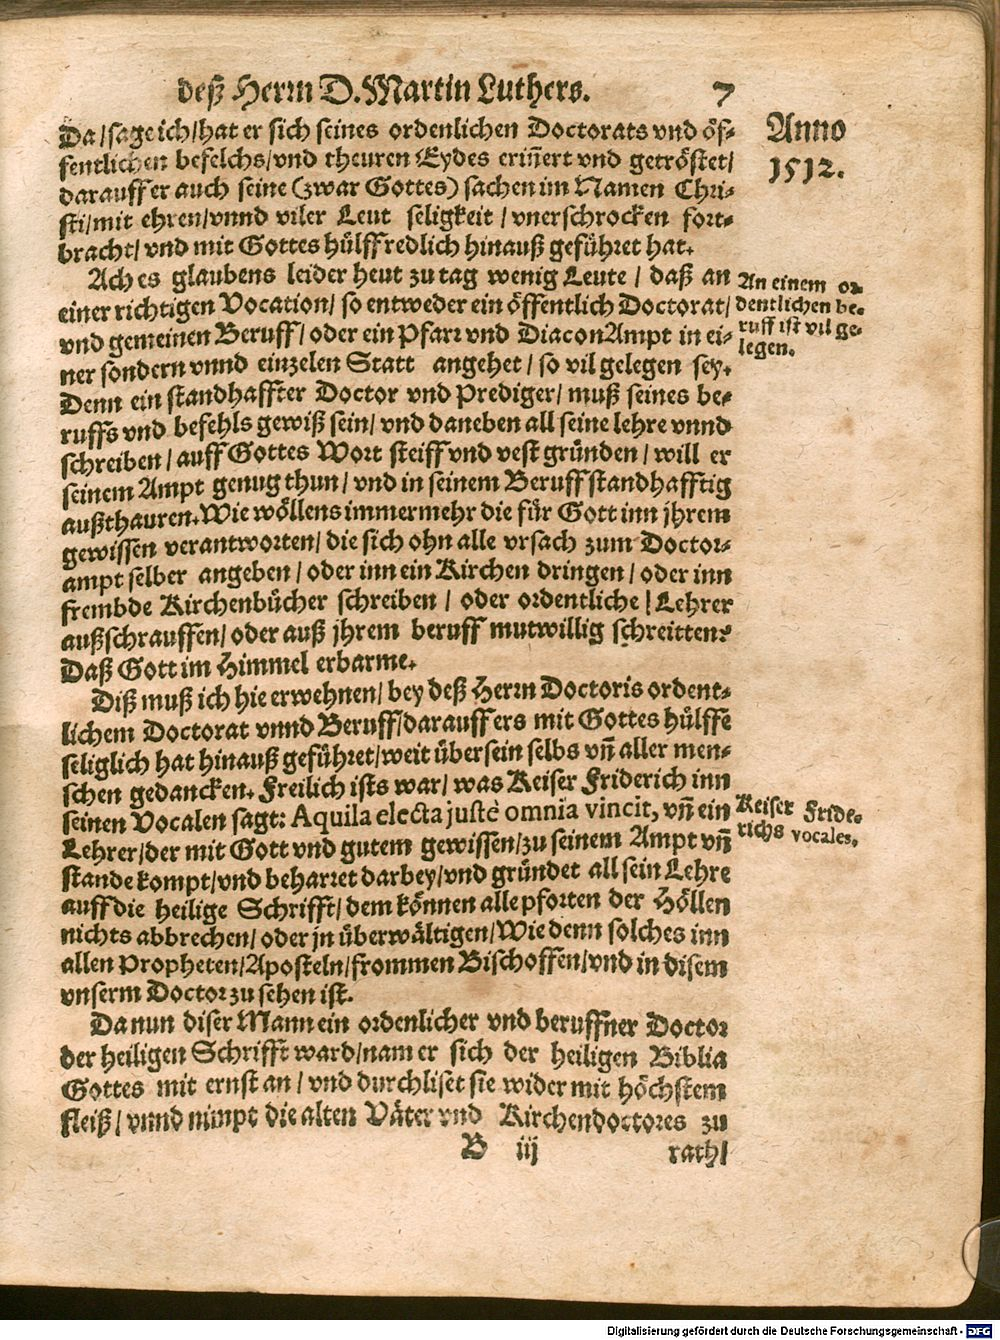 deß Herrn D. Martin Luthers. 7
Da/sage ich/hat er sich seines ordenlichen Doctorats vnd öf-
fentlichen befelchs/vnd theuren Eydes eriñert vnd getröstet/
darauff er auch seine (zwar Gottes) sachen im Namen Chri-
sti/mit ehren/vnnd viler Leut seligkeit/vnerschrocken fort-
bracht/vnd mit Gottes hülff redlich hinauß geführet hat.
Anno
1512.
Ach es glaubens leider heut zu tag wenig Leute/daß an
einer richtigen Vocation/so entweder ein öffentlich Doctorat/
vnd gemeinen Beruff/oder ein Pfarr vnd Diacon Ampt in ei-
ner sondern vnnd einzelen Statt angehet/so vil gelegen sey.
Denn ein standhaffter Doctor vnd Prediger/muß seines be-
ruffs vnd befehls gewiß sein/vnd daneben all seine lehre vnnd
schreiben/auff Gottes Wort steiff vnd vest gründen/will er
seinem Ampt genug thun/vnd in seinem Beruff standhafftig
außthauren. Wie wöllens immermehr die für Gott inn jhrem
gewissen verantworten/die sich ohn alle vrsach zum Doctor-
ampt selber angeben/oder inn ein Kirchen dringen/oder inn
frembde Kirchenbücher schreiben/oder ordentliche Lehrer
außschrauffen/oder auß jhrem beruff mutwillig schreitten?
Daß Gott im Himmel erbarme.
An einem or-
dentlichen be-
ruff ist vil ge-
legen.
Diß muß ich hie erwehnen/bey deß Herrn Doctoris ordent-
lichem Doctorat vnnd Beruff/darauff ers mit Gottes hülffe
seliglich hat hinauß geführet/weit über sein selbs vñ aller men-
schen gedancken. Freilich ists war/was Keiser Friderich inn
seinen Vocalen sagt: Aquila electa justè omnia vincit, vñ ein
Lehrer/der mit Gott vnd gutem gewissen/zu seinem Ampt vñ
stande kompt/vnd beharret darbey/vnd gründet all sein Lehre
auff die heilige Schrifft/dem können alle pforten der Höllen
nichts abbrechen/oder jn überwältigen/Wie denn solches inn
allen Propheten/Aposteln/frommen Bischoffen/vnd in disem
vnserm Doctor zu sehen ist.
Keiser Fride-
richs vocales.
Da nun diser Mann ein ordenlicher vnd beruffner Doctor
der heiligen Schrifft ward/nam er sich der heiligen Biblia
Gottes mit ernst an/vnd durchliset sie wider mit höchstem
fleiß/vnnd nimpt die alten Väter vnd Kirchendoctores zu
B iij rath/
Digitalisierung gefördert durch die Deutsche Forschungsgemeinschaft - DFG